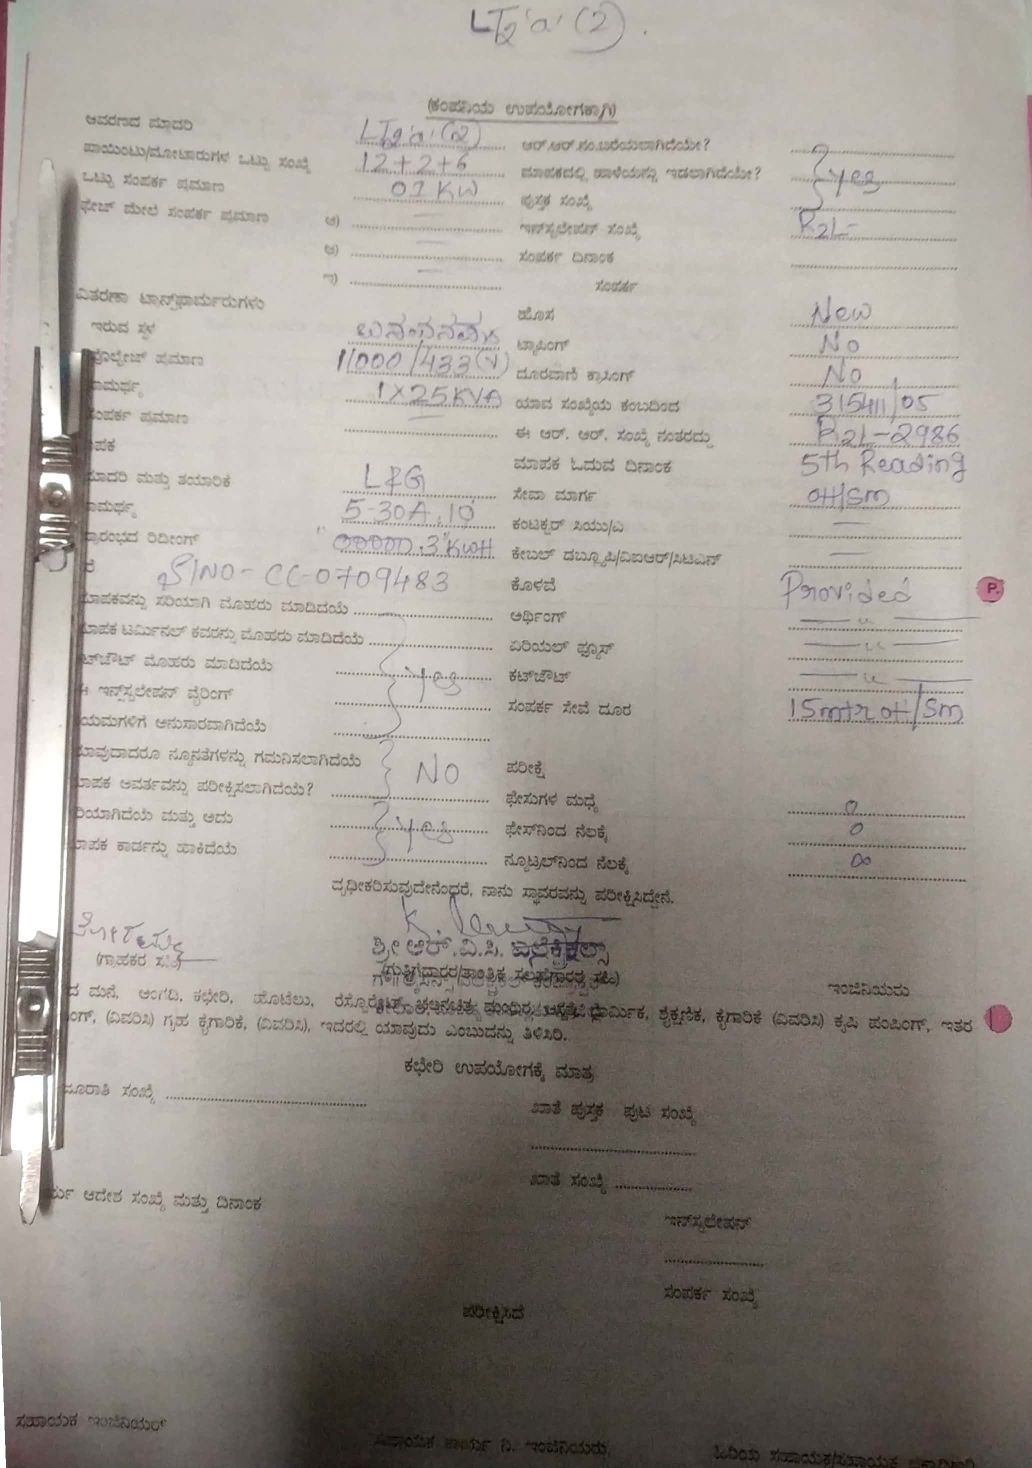 LT2'a'(2).
(ಕಂಪನಿಯ ಉಪಯೋಗಕ್ಕಾಗಿ)
ಆವರಣದ ಮಾದರಿ LT2'a'(2) ಆರ್.ಆರ್.ನಂ.ಬರೆಯಲಾಗಿದೆಯೇ?
ಪಾಯಿಂಟು/ಮೋಟಾರುಗಳ ಒಟ್ಟು ಸಂಖ್ಯೆ 12+2+6 ಮಾಪಕದಲ್ಲಿ ಹಾಳೆಯನ್ನು ಇಡಲಾಗಿದೆಯೇ? yes
ಒಟ್ಟು ಸಂಪರ್ಕ ಪ್ರಮಾಣ 01 KW ಪುಸ್ತಕ ಸಂಖ್ಯೆ
ಫೇಜ್ ಮೇಲೆ ಸಂಪರ್ಕ ಪ್ರಮಾಣ ಅ) ಇನ್‌ಸ್ಟಲೇಷನ್ ಸಂಖ್ಯೆ R2L-
ಆ) ಸಂಪರ್ಕ ದಿನಾಂಕ
ಇ) ಸಂಪರ್ಕ
ವಿತರಣಾ ಟ್ರಾನ್ಸ್‌ಫಾರ್ಮರುಗಳು ಹೊಸ New
ಇರುವ ಸ್ಥಳ ಟ್ಯಾಪಿಂಗ್ No
ವೋಲ್ಟೇಜ್ ಪ್ರಮಾಣ 11000/433(V) ದೂರವಾಣಿ ಕ್ರಾಸಿಂಗ್ No
ಸಾಮರ್ಥ್ಯ 1X25KVA ಯಾವ ಸಂಖ್ಯೆಯ ಕಂಬದಿಂದ 315411/05
ಸಂಪರ್ಕ ಪ್ರಮಾಣ ಈ ಆರ್. ಆರ್. ಸಂಖ್ಯೆ ನಂತರದ್ದು R2L-2986
ಮಾಪಕ ಓದುವ ದಿನಾಂಕ 5th Reading
ಮಾದರಿ ಮತ್ತು ತಯಾರಿಕೆ L&G ಸೇವಾ ಮಾರ್ಗ OH/Sm
ಸಾಮರ್ಥ್ಯ 5-30A, 1Ø ಕಂಟಕ್ಟರ್ ಸಿಯು/ಎ
ಪ್ರಾರಂಭದ ರಿಡೀಂಗ್ "00000.3"KWH ಕೇಬಲ್ ಡಬ್ಲ್ಯೂಪಿ/ವಿಐಆರ್/ಸಿಟಿಎಸ್
S/NO- CC-0709483 ಕೊಳವೆ Provided
ಮಾಪಕವನ್ನು ಸರಿಯಾಗಿ ಮೊಹರು ಮಾಡಿದೆಯೆ ಅರ್ಥಿಂಗ್ — " —
ಮಾಪಕ ಟರ್ಮಿನಲ್ ಕವರನ್ನು ಮೊಹರು ಮಾಡಿದೆಯೆ ಏರಿಯಲ್ ಫ್ಯೂಸ್ — " —
ಕಟ್‌ಔಟ್ ಮೊಹರು ಮಾಡಿದೆಯೆ yes ಕಟ್‌ಔಟ್ — " —
ಈ ಇನ್‌ಸ್ಟಲೇಷನ್ ವೈರಿಂಗ್ ಸಂಪರ್ಕ ಸೇವೆ ದೂರ 15mtr OH/Sm
ನಿಯಮಗಳಿಗೆ ಅನುಸಾರವಾಗಿದೆಯೆ
ಯಾವುದಾದರೂ ನ್ಯೂನತೆಗಳನ್ನು ಗಮನಿಸಲಾಗಿದೆಯೆ NO ಪರೀಕ್ಷೆ
ಮಾಪಕ ಆವರ್ತವನ್ನು ಪರೀಕ್ಷಿಸಲಾಗಿದೆಯೆ? ಫೇಸುಗಳ ಮಧ್ಯೆ 0
ಸರಿಯಾಗಿದೆಯೆ ಮತ್ತು ಅದು yes ಫೇಸ್‌ನಿಂದ ನೆಲಕ್ಕೆ 0
ಮಾಪಕ ಕಾರ್ಡನ್ನು ಹಾಕಿದೆಯೆ ನ್ಯೂಟ್ರಲ್‌ನಿಂದ ನೆಲಕ್ಕೆ ∞
ದೃಢೀಕರಿಸುವುದೇನೆಂದರೆ, ನಾನು ಸ್ಥಾವರವನ್ನು ಪರೀಕ್ಷಿಸಿದ್ದೇನೆ.
ಶ್ರೀ ಆರ್.ವಿ.ಸಿ. ಎಲೆಕ್ಟ್ರಿಕಲ್ಸ್
(ಗ್ರಾಹಕರ ಸಹಿ) (ಗುತ್ತಿಗೆದಾರರ/ತಾಂತ್ರಿಕ ಸಲಹೆಗಾರರ ಸಹಿ) ಇಂಜಿನಿಯರು
ದ ಮನೆ, ಅಂಗಡಿ, ಕಛೇರಿ, ಹೊಟೆಲು, ರೆಸ್ಟೊರೆಟ್, ಚಲನಚಿತ್ರ ಮಂದಿರ, ಆಸ್ಪತ್ರೆ, ಧಾರ್ಮಿಕ, ಶೈಕ್ಷಣಿಕ, ಕೈಗಾರಿಕೆ (ವಿವರಿಸಿ) ಕೃಷಿ ಪಂಪಿಂಗ್, ಇತರ
ಂಗ್, (ವಿವರಿಸಿ) ಗೃಹ ಕೈಗಾರಿಕೆ, (ವಿವರಿಸಿ), ಇದರಲ್ಲಿ ಯಾವುದು ಎಂಬುದನ್ನು ತಿಳಿಸಿರಿ.
ಕಛೇರಿ ಉಪಯೋಗಕ್ಕೆ ಮಾತ್ರ
ಮಂಜೂರಾತಿ ಸಂಖ್ಯೆ
ಖಾತೆ ಪುಸ್ತಕ ಪುಟ ಸಂಖ್ಯೆ
ಖಾತೆ ಸಂಖ್ಯೆ
ಕಾರ್ಯ ಆದೇಶ ಸಂಖ್ಯೆ ಮತ್ತು ದಿನಾಂಕ
ಇನ್‌ಸ್ಟಲೇಷನ್
ಸಂಪರ್ಕ ಸಂಖ್ಯೆ
ಪರೀಕ್ಷಿಸಿದೆ
ಸಹಾಯಕ ಇಂಜಿನಿಯರ್ ಸಹಾಯಕ ಕಾರ್ಯ ನಿ. ಇಂಜಿನಿಯರು. ಹಿರಿಯ ಸಹಾಯಕ/ಸಹಾಯಕ